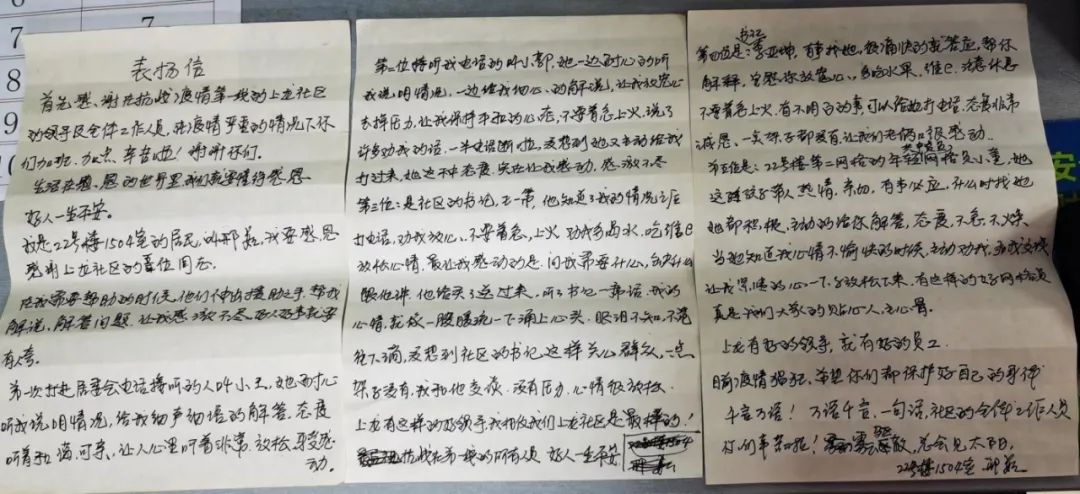 6
7
8
9
10
7
安
表扬信
首先感谢在抗战疫情第一线的上龙社区
的领导及全体工作人员,在疫情严重的情况下你
们加班、加点、辛苦啦!谢谢你们。
生活在感恩的世界里我们就要懂得感恩
好人一生平安。
我是22号楼1504室的居民,叫邢 我要感恩
感谢上龙社区的几位同志
在我需要帮助的时候,他们伸出援助之手,帮我
解说,解答问题,让我感激不尽
有人夸。
第一次打进居委会电话接听的人叫小王,她耐心
听我说明情况,给我细声细语的解答,态度
和蔼可亲,让人心里听着非常放松,享受感
动。
第二位接听我电话的叫小郭,她一边耐心的听
我说明情况,一边给我细心的解说,让我放宽心
去掉压力,让我保持平和的心态,不要着急上火,说了
许多劝我的话,一半电话断啦,没想到她又主动给我
打过来,她这种态度实在让我感动,感激不尽
第三位:是社区的书记,王一帝,他知道了我的情况之后
打电话,劝我放心、不要着急,上火 劝我多喝水,吃维C
放松心情,最让我感动的是,问我需要什么,缺什么
跟他讲,他给买了送过来,听了书记一席话,我的
心情,就像一股暖流一下涌上心头,眼泪不知不觉
往下淌,没想到社区的书记这样关心群众,一点
架子没有,我和他交谈,没有压力,心情很放松
上龙有这样的好领导,我相信我们上龙社区是最棒的!
抗战在第一线的所有人员 好人一生平安
书记
第四位是:李亚坤,有事找她,很痛快的就答应,帮你
解释,总劝你放宽心,多吃水果,维C,注意休息
不要着急上火,有不明白的事,可以给她打电话,态度非常
诚恳,一点架子都没有,让我们老俩口很感动
第五位是:22号楼第二网格的年轻网格员小 她
这孩子待人热情,亲切,有事必应,什么时找她
她都积极,主动的给你解答,态度,不急,不燥
当她知道我心情不愉快的时候,主动劝我
让我 的心一下子放松下来,有这样的好网格员
真是我们大家的贴心人,主心骨。
上龙有好的领导,就有好的员工
目前疫情猖狂,希望你们都保护好自己的身体
千言万语!万语千言,一句话,社区的全体工作人员
你们辛苦啦! 散,总会见太阳。
22号楼1504室 邢